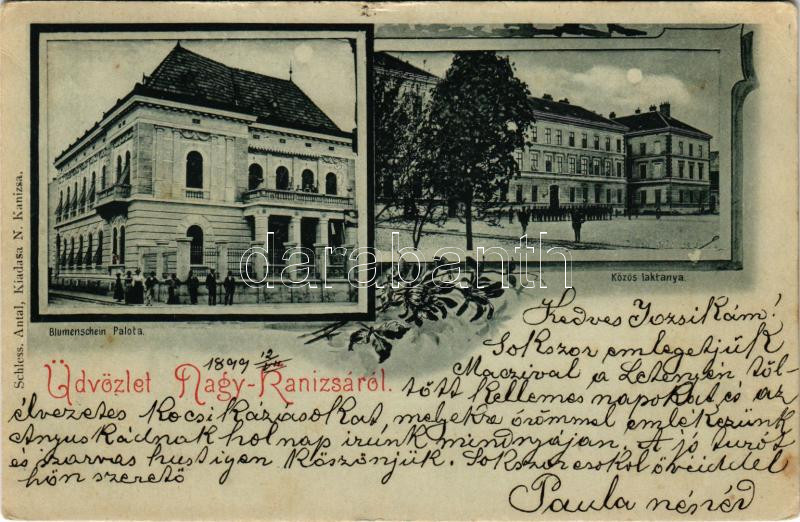 Schless. Antal, Kiadása N. Kanizsa.
Blumenschein Palota.
Közös laktanya.
darabanth
Üdvözlet Nagy-Kanizsáról.
1899 12/
Kedves Jozsikám!
Sokszor emlegetjük
Maczival a Letenyén töl-
tött kellemes napokat és az
élvezetes kocsikázásokat, melyekre örömmel emlékezünk
Anyuskádnak holnap irunk mindnyájan. A jó turót
és szarvas hust igen köszönjük. Sokszor csokol övéiddel
hön szerető
Paula nénéd